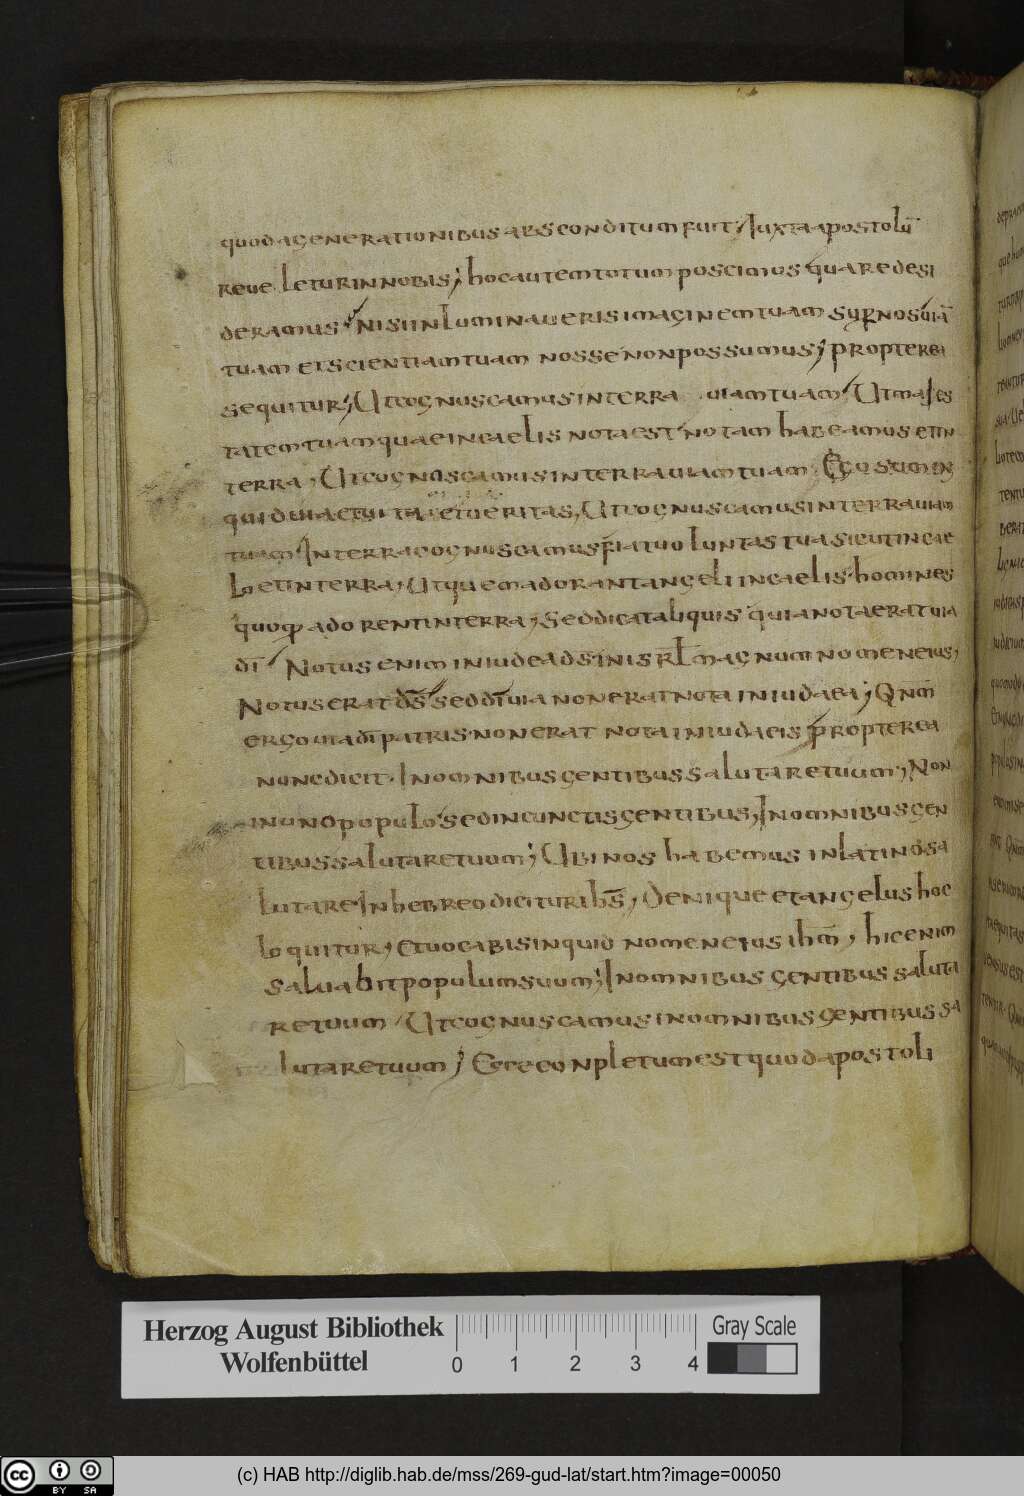 quod a generationibus absconditum fuit, Iuxta apostolū
reue letur in nobis; hoc autem totum poscimus quare desi
deramus. Nisi inluminaueris imaginem tuam sup nos, uiā
tuam et scientiam tuam nosse non possumus; propterea
sequitur; Ut cognuscamus in terra uiam tuam, Ut maies
tatem tuam quae in caelis nota est notam habeamus et in
terra, Ut cognuscamus in terra uiam tuam. Ego sum in
quid uia et uita et ueritas, Ut cognuscamus in terra uiam
tuam. In terra cognuscamus fiat uoluntas tua sicut in cae
lo et in terra, Ut quem adorant angeli in caelis homines
quoq adorent in terra, Sed dicat aliquis quia nota erat uia
dī. Notus enim in iudea ds in isrl magnum nomen eius,
Notus erat ds sed dī uia non erat nota in iudaea; Qnm
ergo uia dī patris non erat nota in iudaeis propterea
nunc dicit. In omnibus gentibus salutare tuum; Non
in uno populo sed in cunctis gentibus, In omnibus gen
tibus salutare tuum; Ubi nos habemus in latino sa
lutare In hebreo dicitur ihs, Denique et angelus hoc
loquitur, et uocabis inquid nomen eius ihm, hic enim
saluabit populum suum; In omnibus gentibus saluta
re tuum. Ut cognuscamus in omnibus gentibus sa
lutare tuum; Ecce conpletum est quod apostoli
Herzog August Bibliothek
Wolfenbüttel
0 1 2 3 4
Gray Scale
cc BY SA
(c) HAB http://diglib.hab.de/mss/269-gud-lat/start.htm?image=00050